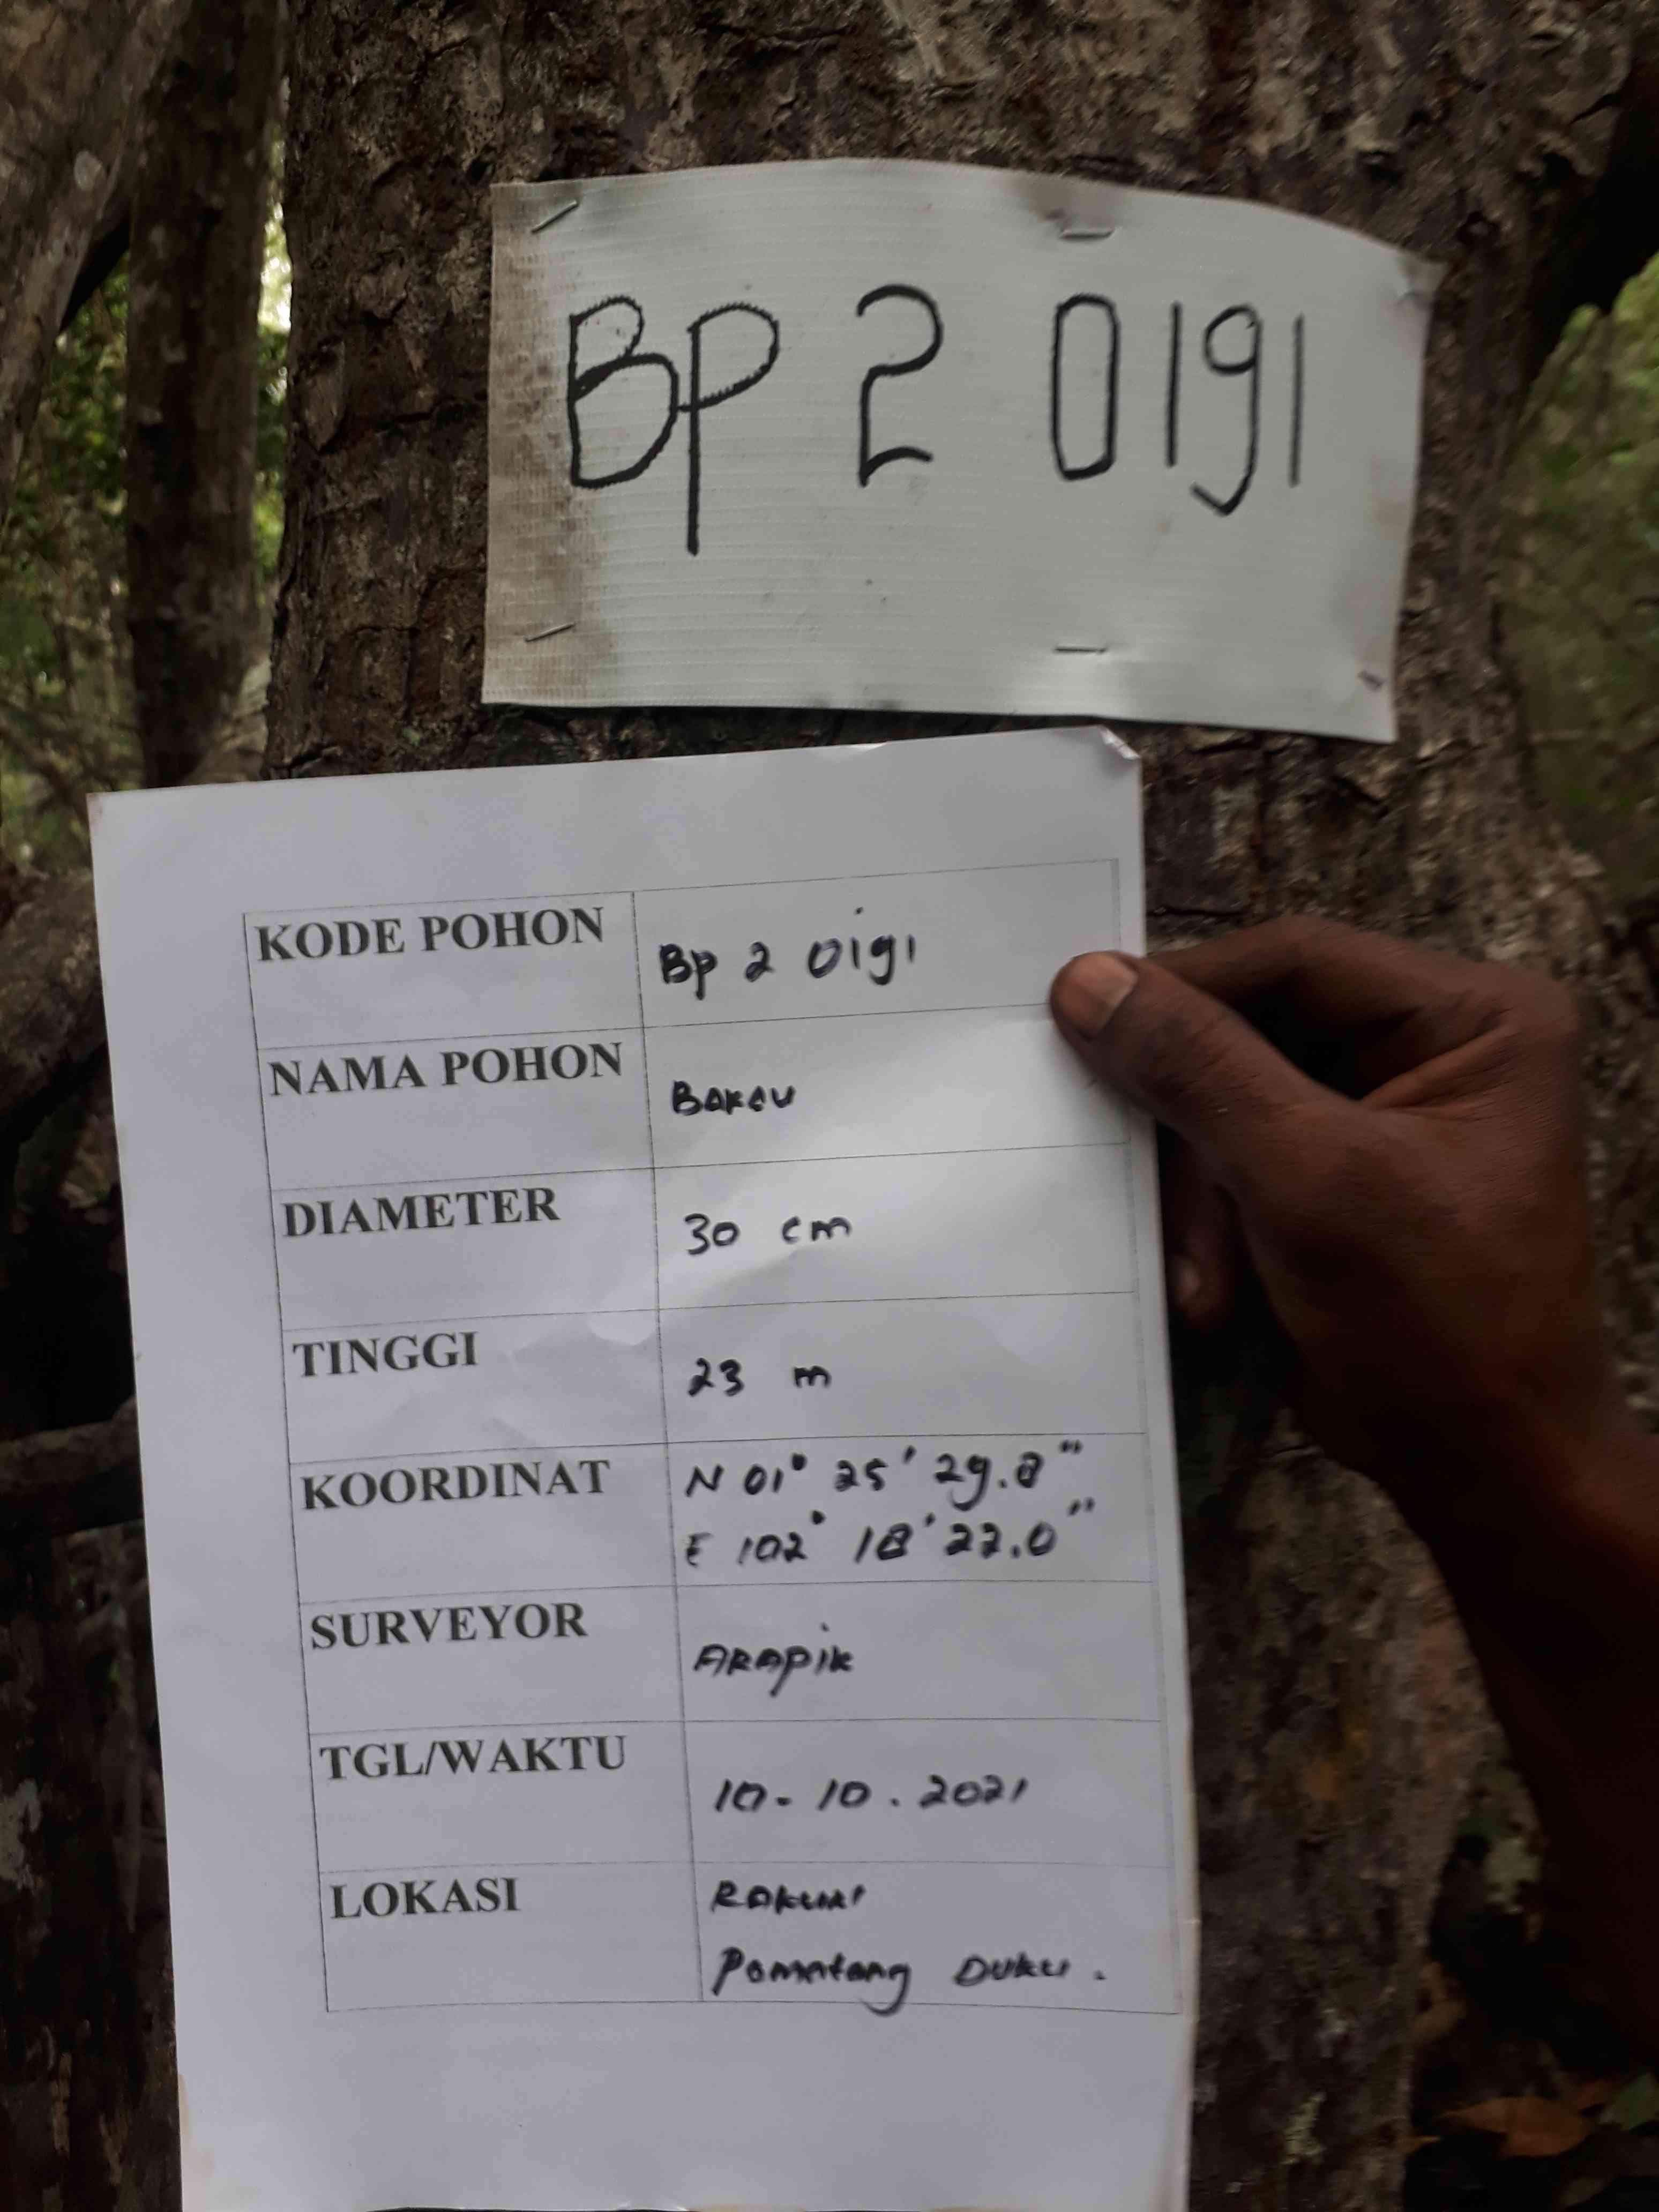 BP 2 0191
KODE POHON Bp 2 0191
NAMA POHON BAKAU
DIAMETER 30 cm
TINGGI 23 m
KOORDINAT N 01° 25' 29.8"
E 102° 18' 22.0"
SURVEYOR ARAPIK
TGL/WAKTU 10-10.2021
LOKASI
Pematang DUKU.